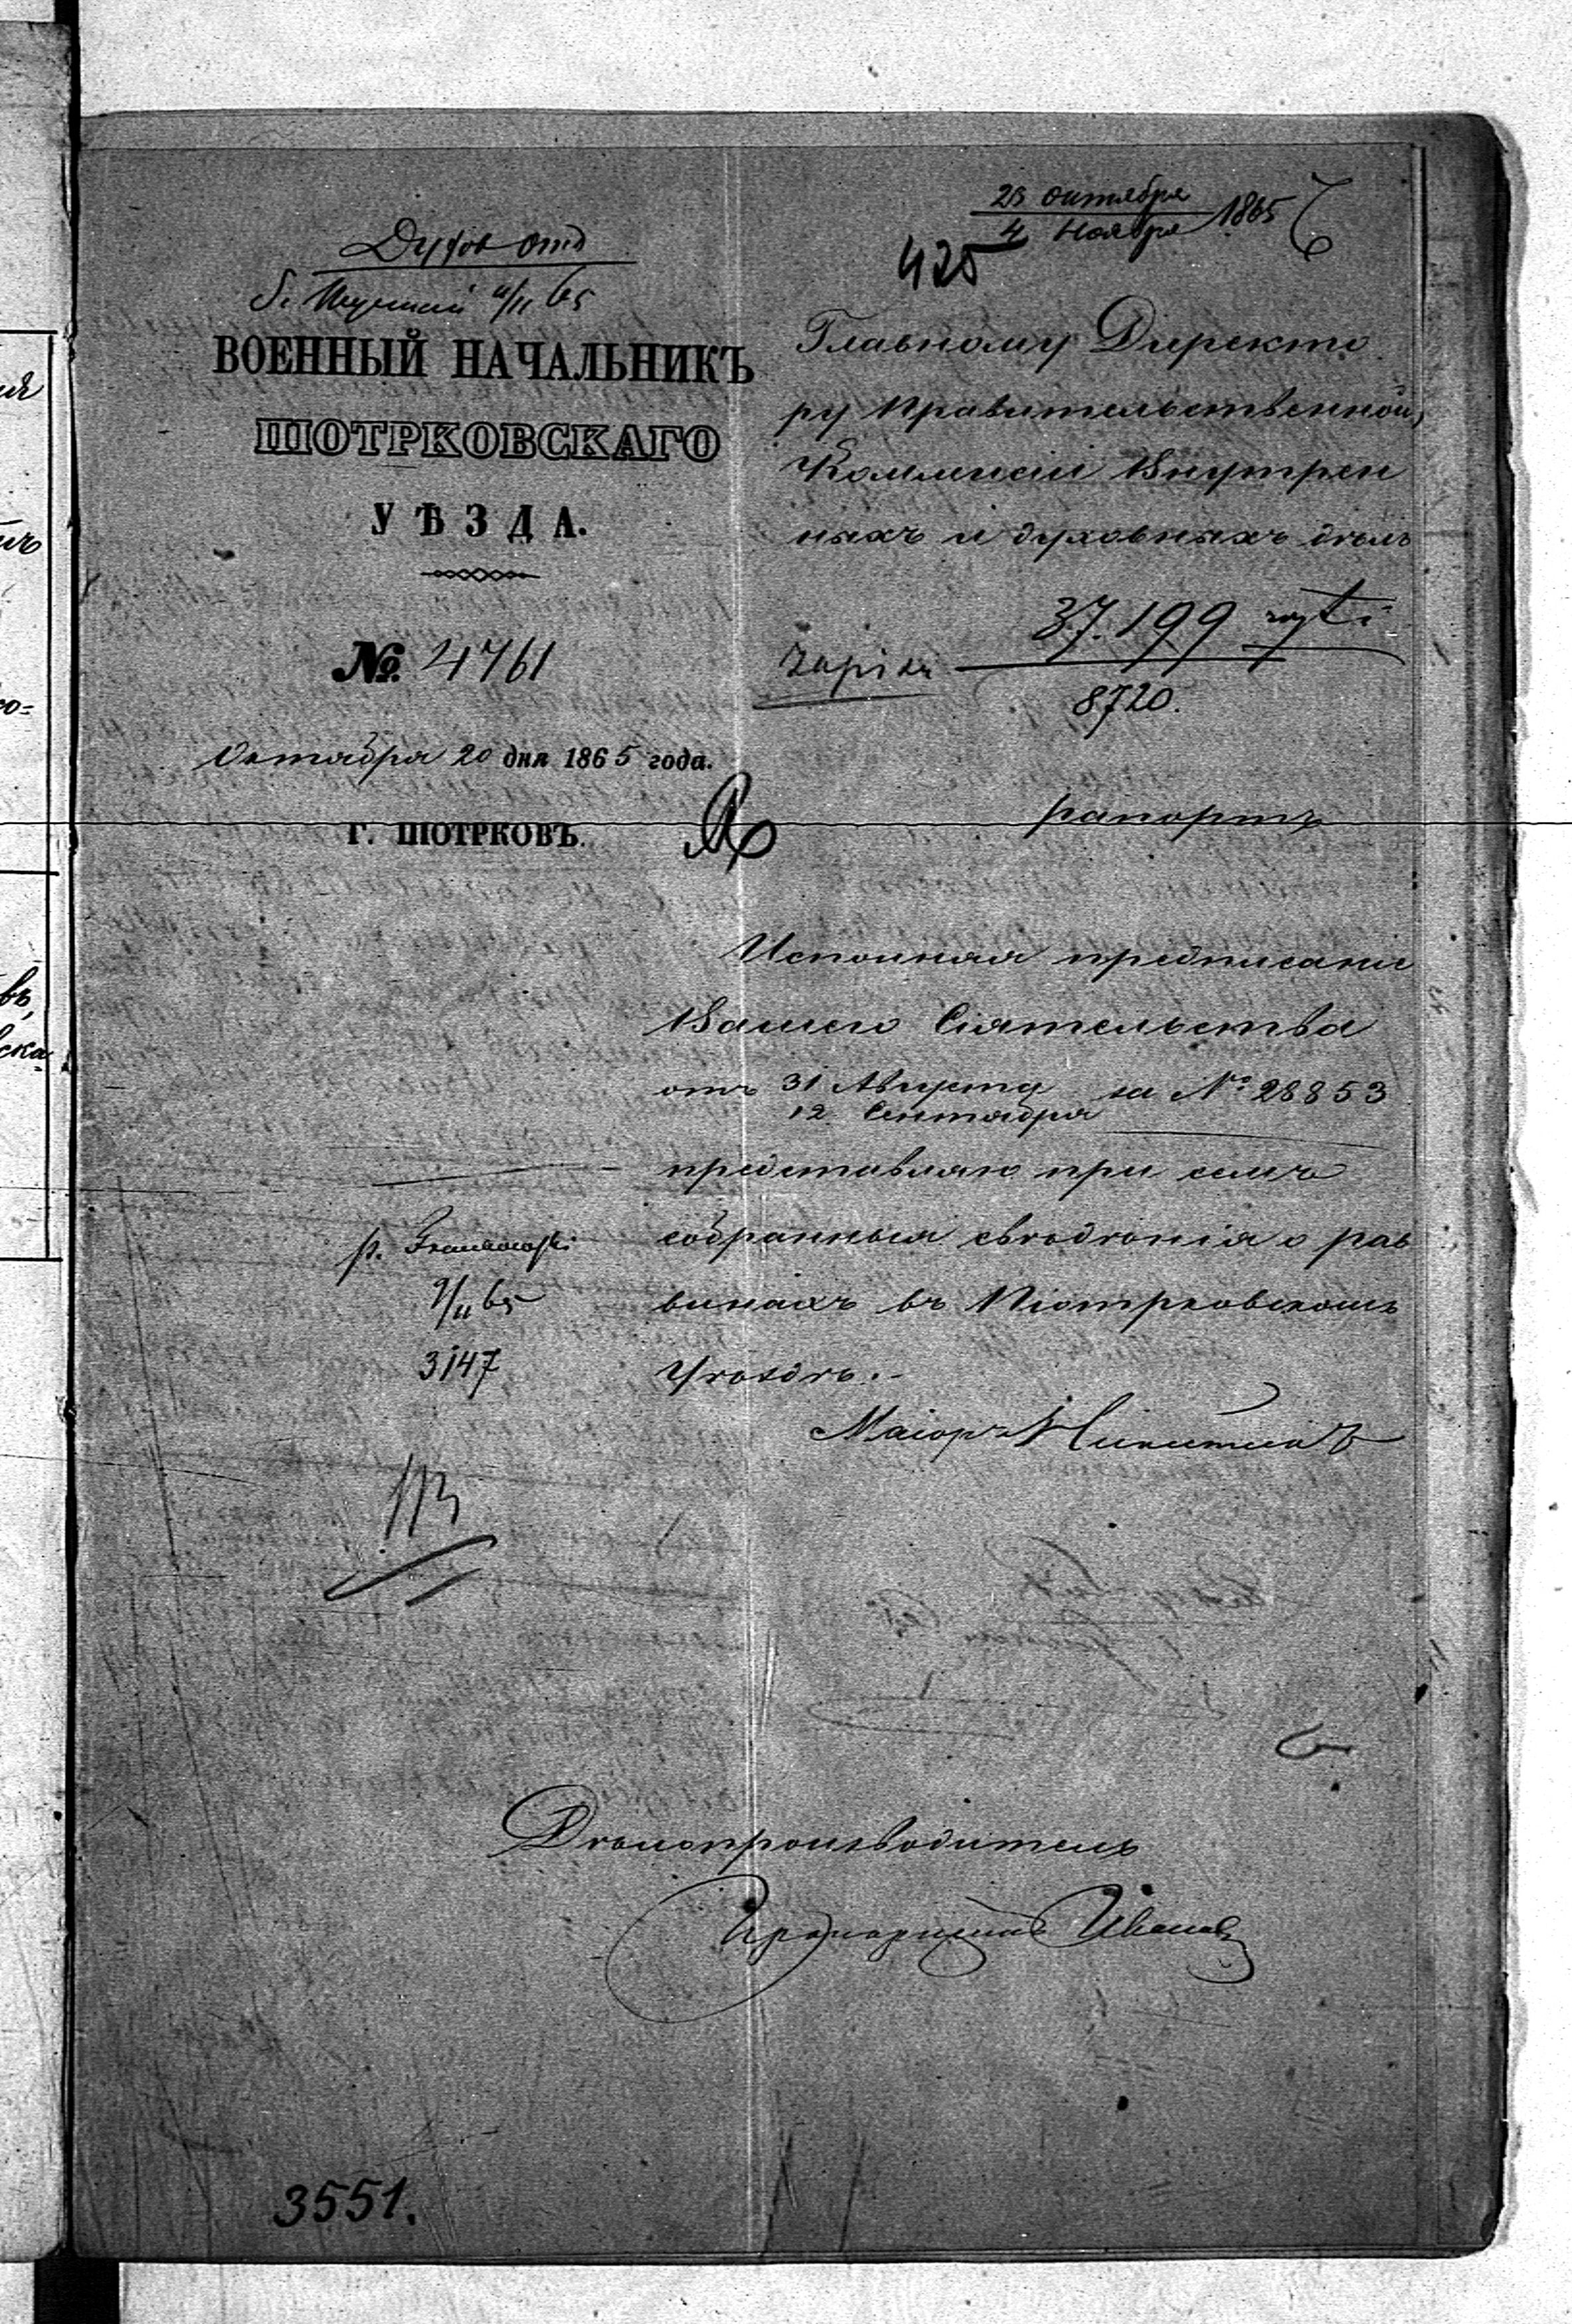 23 октября
4 Ноября 1865
425
Духов отд
4/11 65
ВОЕННЫЙ НАЧАЛЬНИКЪ
ПІОТРКОВСКАГО
УѢЗДА.
№ 4761
Октября 20 дня 1865 года.
Г. ПІОТРКОВЪ.
Главному Директо
ру Правительственной
Коммисіи Внутрен
ныхъ и духовныхъ дѣлъ
37.199
8720.
рапортъ
Исполняя предписаніе
Вашего Сіятельства
отъ 31 Августа за № 28853
12 Сентября
представляю при семъ
собранныя свѣдѣнія о рав
винахъ въ Піотрковскомъ
Уѣздѣ.-
Маіоръ Никитинъ
9/11 65
3147
Дѣлопроизводитель
Прапорщикъ Ивановъ
3551.